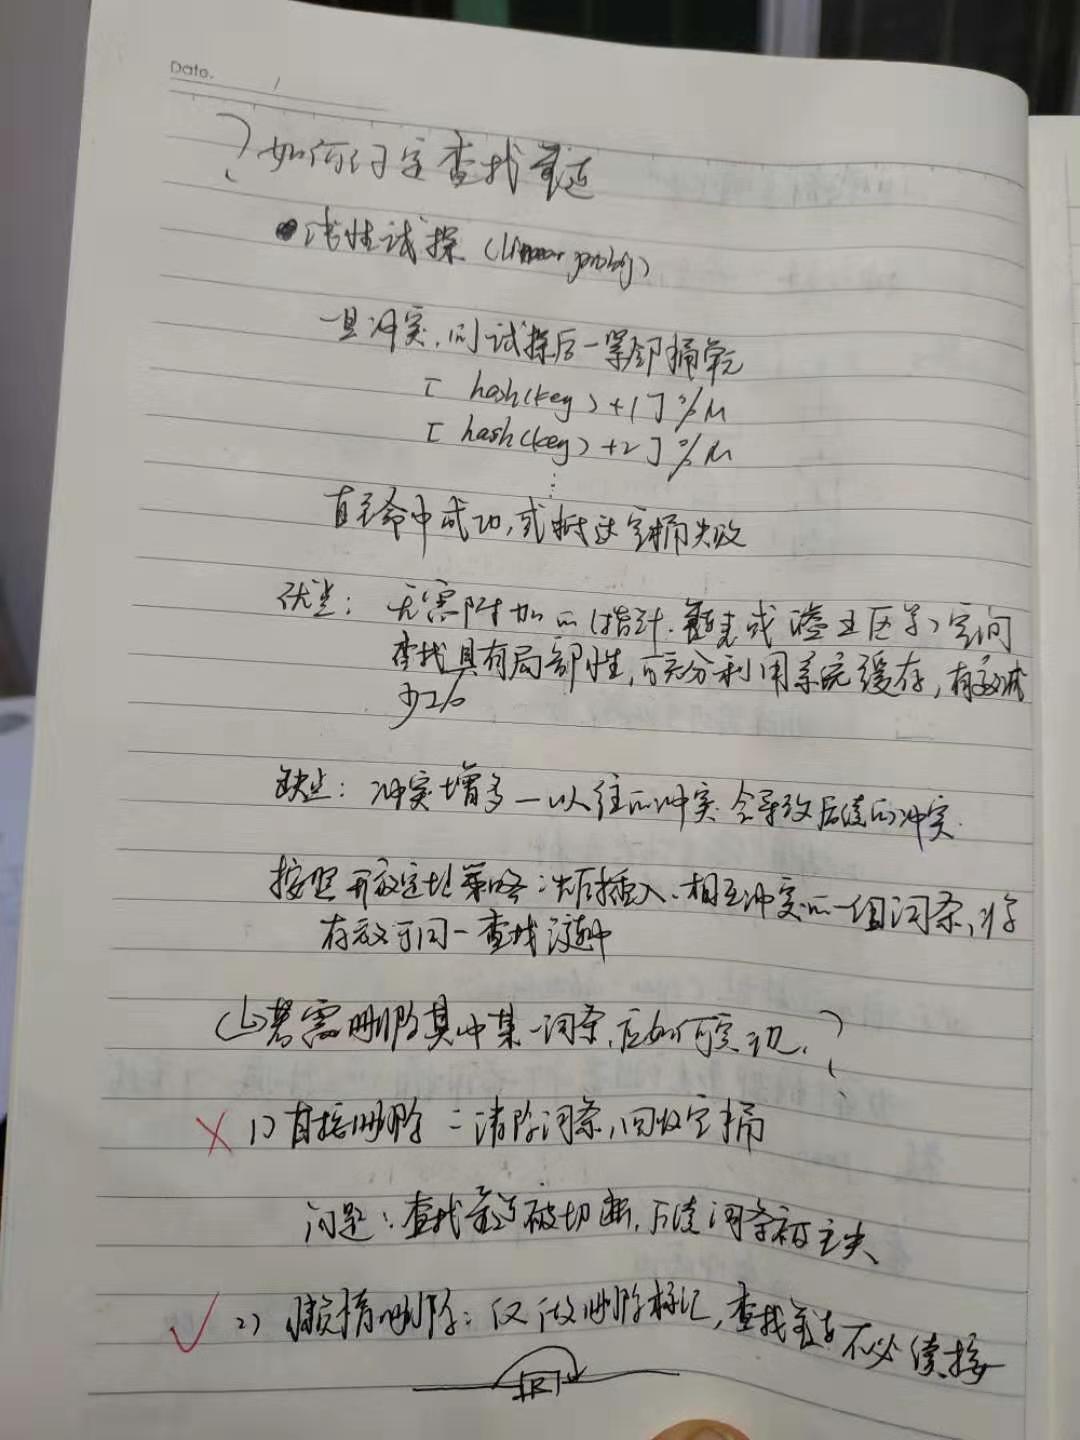 Date. /
? 如何约定查找链
线性试探 (linear probing)
一旦冲突,则试探后一紧邻桶单元
[ hash(key) +1 ] % M
[ hash(key) +2 ] % M
⋮
直至命中成功,或抵达空桶失败
优点: 无需附加的(指针、链表或溢出区等)空间
查找具有局部性,可充分利用系统缓存,有效减
少I/O
缺点: 冲突增多—以往的冲突,会导致后续的冲突.
按照开放定址策略:先后插入、相互冲突的一组词条,将
存放于同一查找链中
(山)若需删除其中某一词条,应如何实现.?
× 1) 直接删除 = 清除词条,回收空桶
问题: 查找链被切断,后续词条被丢失
✓ 2) 懒惰删除: 仅做删除标记,查找链不必续接
R